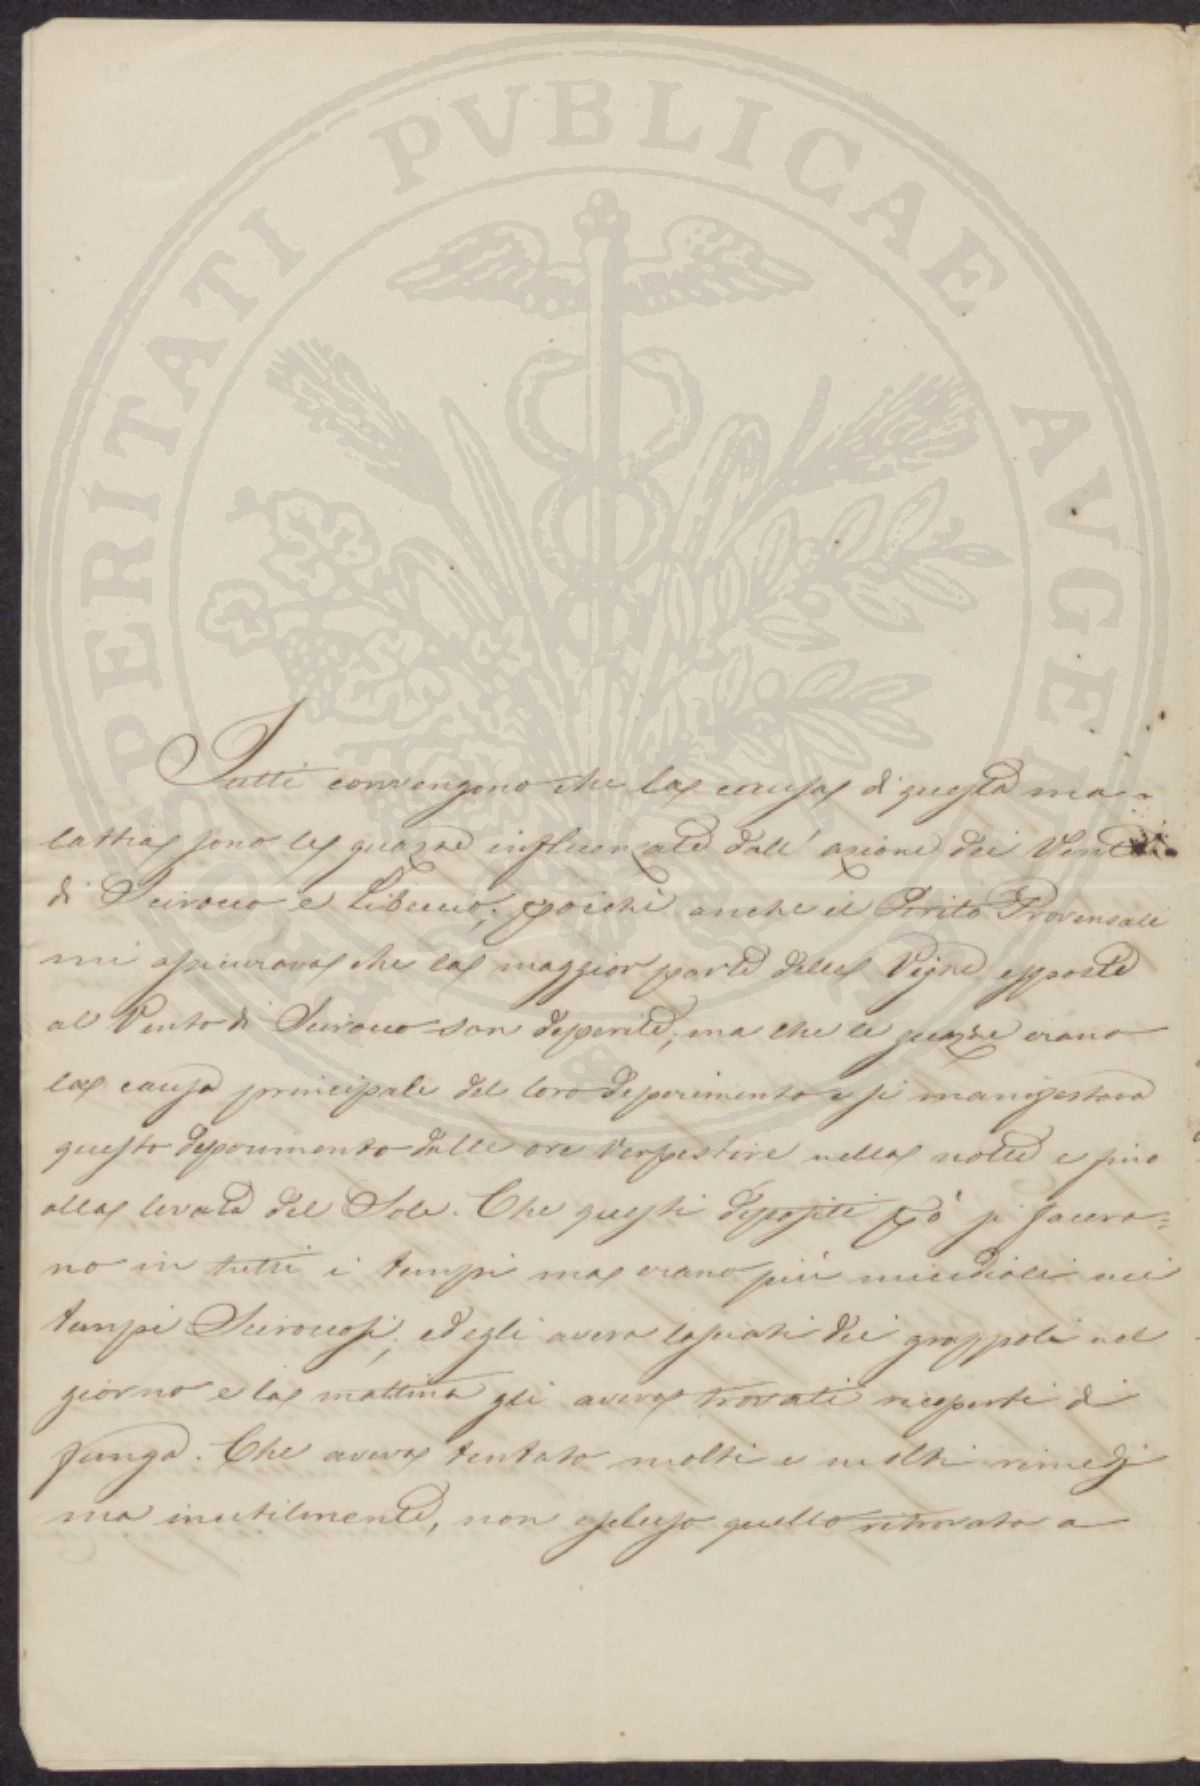 PROSPERITATI PVBLICAE AVGENDAE
Tutti convengono che la causa di questa ma=
lattia sono le guazze influenzate dall' azione dei Venti
di Scirocco e Libeccio; poichè anche il Perito Provensali
mi assicurava che la maggior parte delle Vigne esposte
al Vento di Scirocco son deperite; ma che le guazze erano
la causa principale del loro deperimento e si manifestava
questo deperimento dalle ore Vespertine nella notte e fino
alla levata del Sole. Che questi depositi però si faceva=
no in tutti i tempi ma erano più micidiali nei
tempi Sciroccosi; ed egli aveva lasciati dei grappoli nel
giorno e la mattina gli aveva trovati ricoperti di
funga. Che aveva tentato molti e molti rimedj
ma inutilmente, non escluso quello ritrovato a